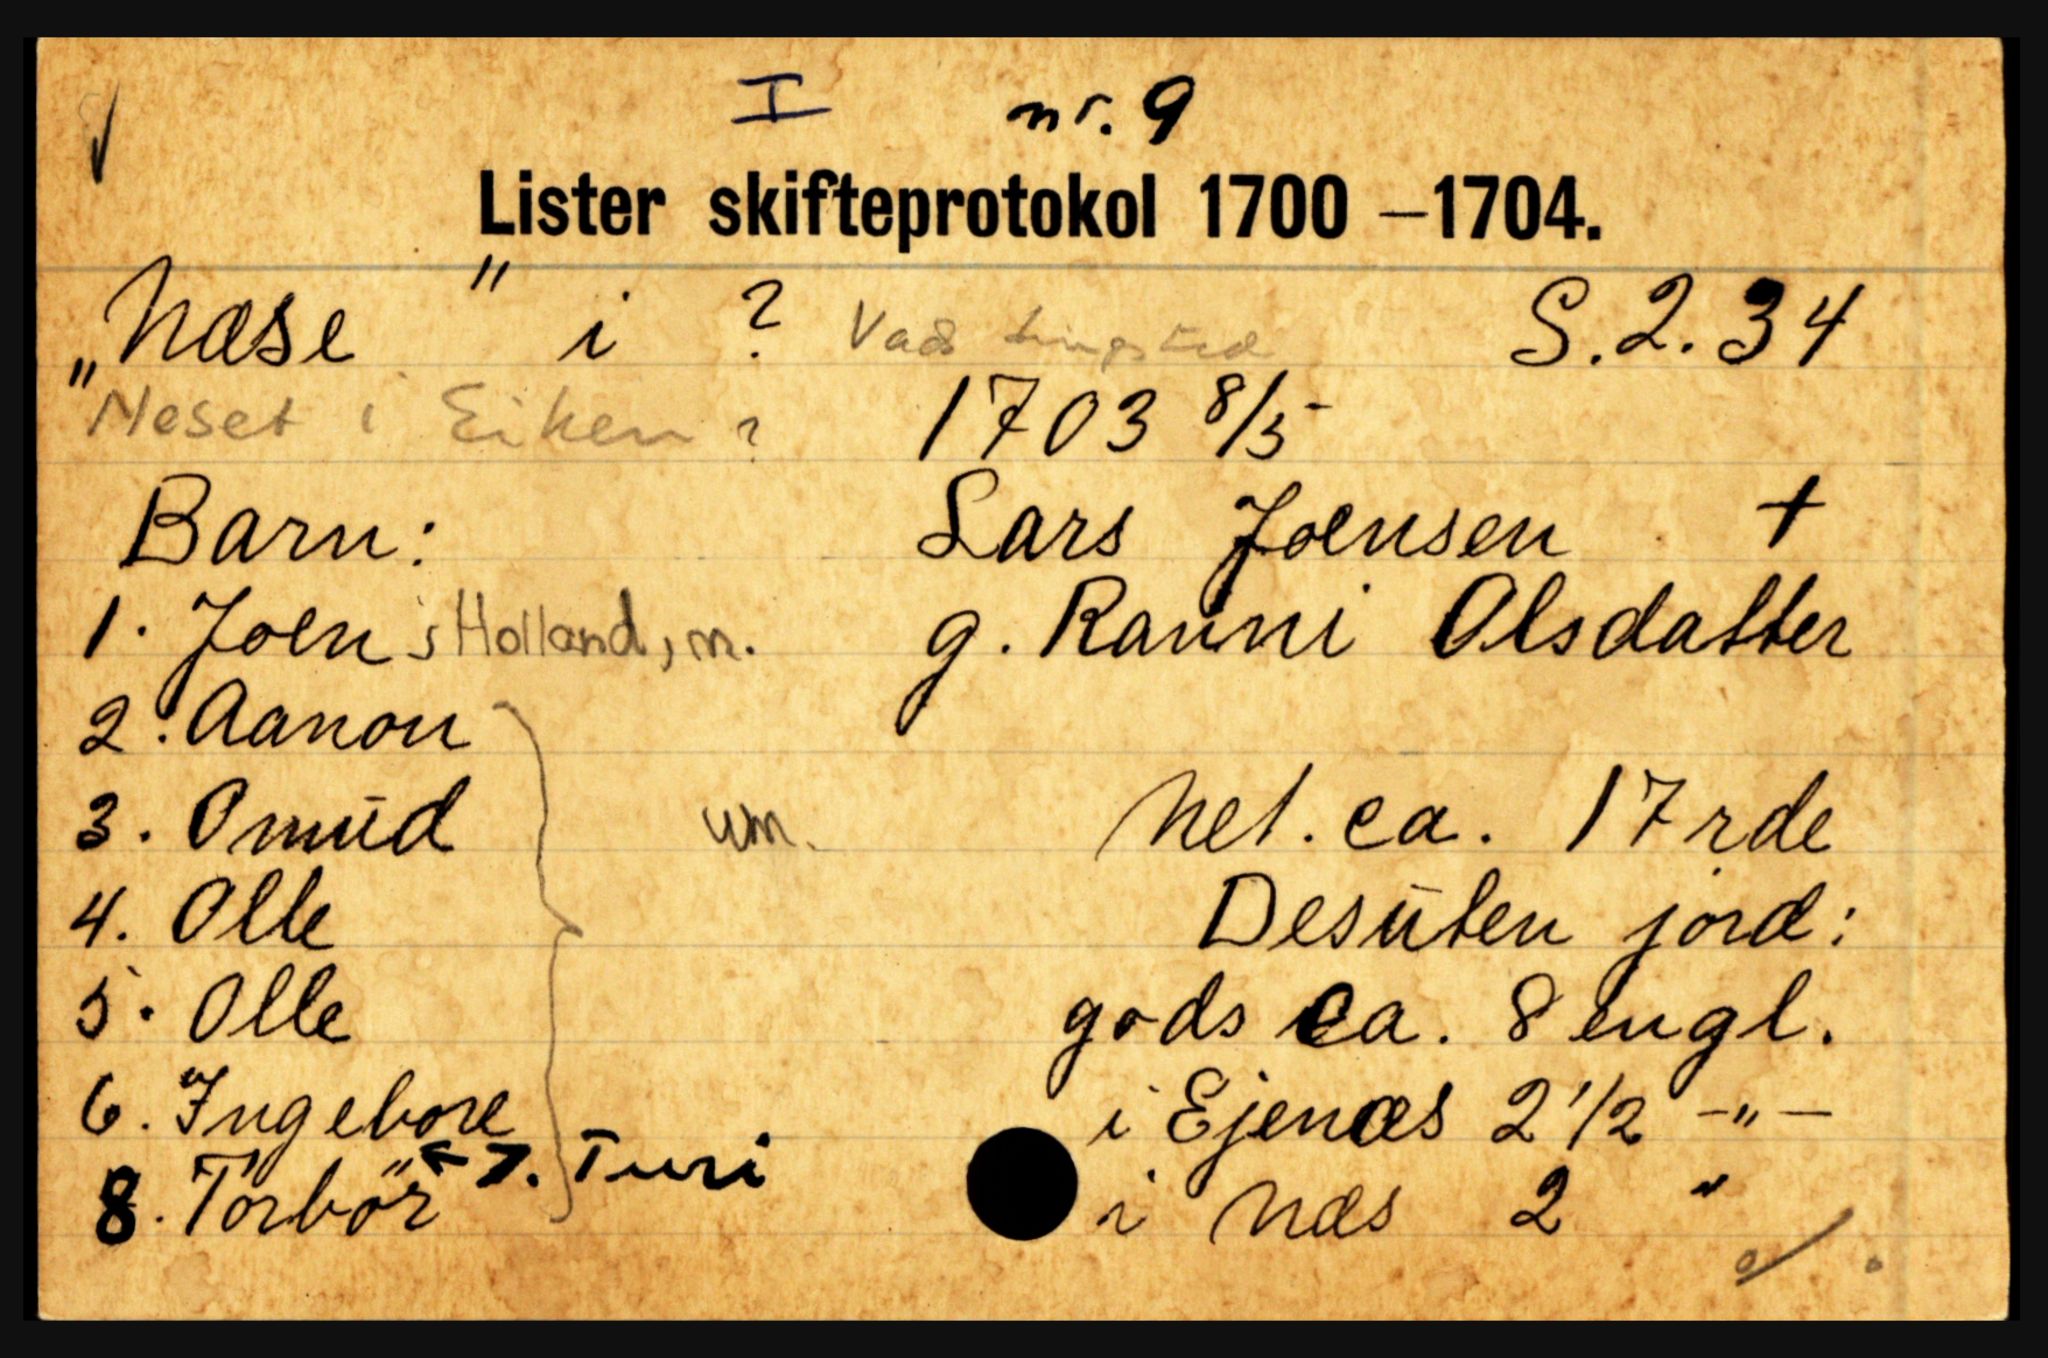 I nr. 9
Lister skifteprotokol 1700 – 1704.
„Næse" i ? S. 2. 34
Neset i Eiken ? 1703 8/5
Barn: Lars Joensen +
1. Joen i Holland, m. g. Ranni Olsdatter
2. Aanon
3. Omŭd um. Net. ca. 17 rde
4. Olle Desŭten jord:
5. Olle gods ca. 8 engl.
6. Ingebore i Ejenæs 2 1/2 –"–
← 7. Turi
8. Torbör i Næs 2 "